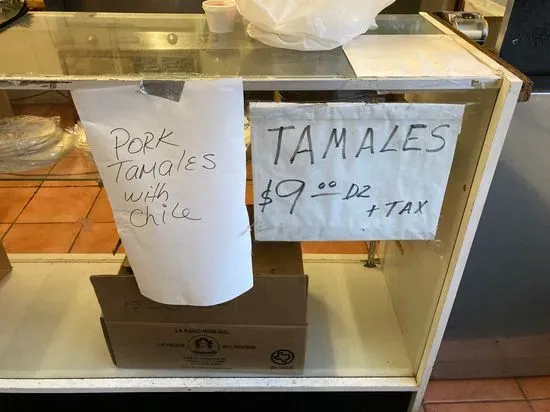 PORK
TAMALES
with
Chile
TAMALES
$9.00 DZ
+ TAX
LA RANCHERA INC.